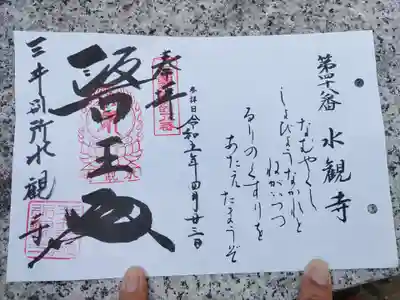 第四十八番 水観寺
なむやくし
しょびょうなかれと
ねがいつつ
るりのくすりを
あたえたまうぞ
参拝日 令和五年四月廿三日
奉拝
醫王殿
三井別所水観寺